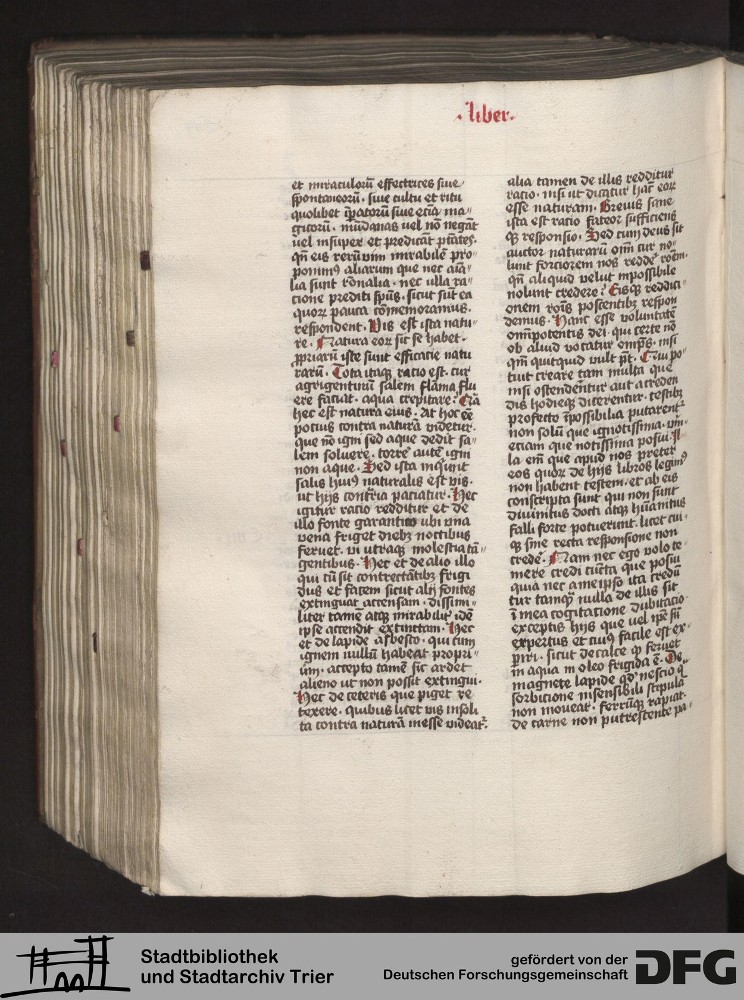 · liber ·
et miraculorū effectrices siue
spontaneorū · siue cultu et ritu
quolibet īpatorū siue etiā ma
gicorū · mūdanas uel nō negāt
uel insuper et predicāt ptātes ·
qn̄ eis rerū uim mirabilē pro
ponimꝰ aliarum que nec aīa
lia sunt rōnalia · nec ulla ra
cione prediti spūs · sicut sūt ea
quoꝝ pauca cōmemorauimus ·
respondent · Vis est ista natu
re · Natura eoꝝ sic se habet ·
ꝓpriarū iste sunt efficatie natu
rarū · Tota itaqꝫ ratio est · cur
agrigentinū salem flāma flu
ere faciat · aqua crepitare · Quia
hec est natura eius · At hoc ēē
pocius contra naturā videtur ·
que nō igni sed aque dedit sa
lem soluere · torrē autē igni
non aque · Sed ista inquiūt
salis huiꝰ naturalis est vis ·
ut hijs contria paciatur · Hec
igitur ratio redditur et de
illo fonte garantico ubi una
vena friget diebꝫ noctibus
feruet · vi utraqꝫ molesta tā
gentibus · Hec et de alio illo
qui cū sit contrectātibꝫ frigi
dus et facem sicut alij fontes
extinguat accensam · dissimi
liter tamē atqꝫ mirabilit̄ idē
ipse accendit extinctam · Hec
et de lapide asbesto · qui cum
ignem nullū habeat propri
um · accepto tamē sic ardet
alieno ut non possit extingui ·
Hec de ceteris que piget re
texere · quibus licet vis insoli
ta contra naturā inesse videat᷑ ·
alia tamen de illis redditur
ratio · nisi ut dicatur hāc eoꝝ
esse naturam · Breuis sane
ista est ratio fateor sufficiens
qꝫ responsio · Sed cum deus sit
auctor naturarū om̄i cur no
lunt forciorem nos reddē rōem ·
qn̄ aliquid velut impossibile
nolunt credere · Eisqꝫ reddici
onem rōis poscentibꝫ respon
demus · Hanc esse voluntatē
omīpotentis dei · qui certe nō
ob aliud vocatur omps · nisi
qm̄ quitquid vult pt̄ · Qui po
tuit creare tam multa que
nisi ostendentur aut a creden
dis hodieqꝫ dicerentur · testibꝫ
profecto īpossibilia putarent᷑
non solū que ignotissima · vm̄
etiam que notissima posui ·
la em̄ que apud nos preter
eos quoꝝ de hijs libros legimꝰ
non habent testem · et ab eis
conscripta sunt qui non sunt
diuinitus docti atqꝫ hūanitus
falli forte potuerunt · licet cui
qꝫ sine recta responsione non
credē · Nam nec ego volo te
mere credi cūcta que posui
quia nec a meipso ita credū
tur tamqꝫ nulla de illis sit
ī mea cogitacione dubitacio ·
exceptis hijs que vel ipē sū
expertus et cuiꝫ facile est ex
ꝑiri · sicut de calce qꝫ feruet
in aqua in oleo frigida ē · De
magnete lapide qd̓ nescio q
sorbitione insensibili stipula
non moueat · ferrūqꝫ rapiat ·
de carne non putrescente pa
Stadtbibliothek
und Stadtarchiv Trier
gefördert von der
Deutschen Forschungsgemeinschaft
DFG